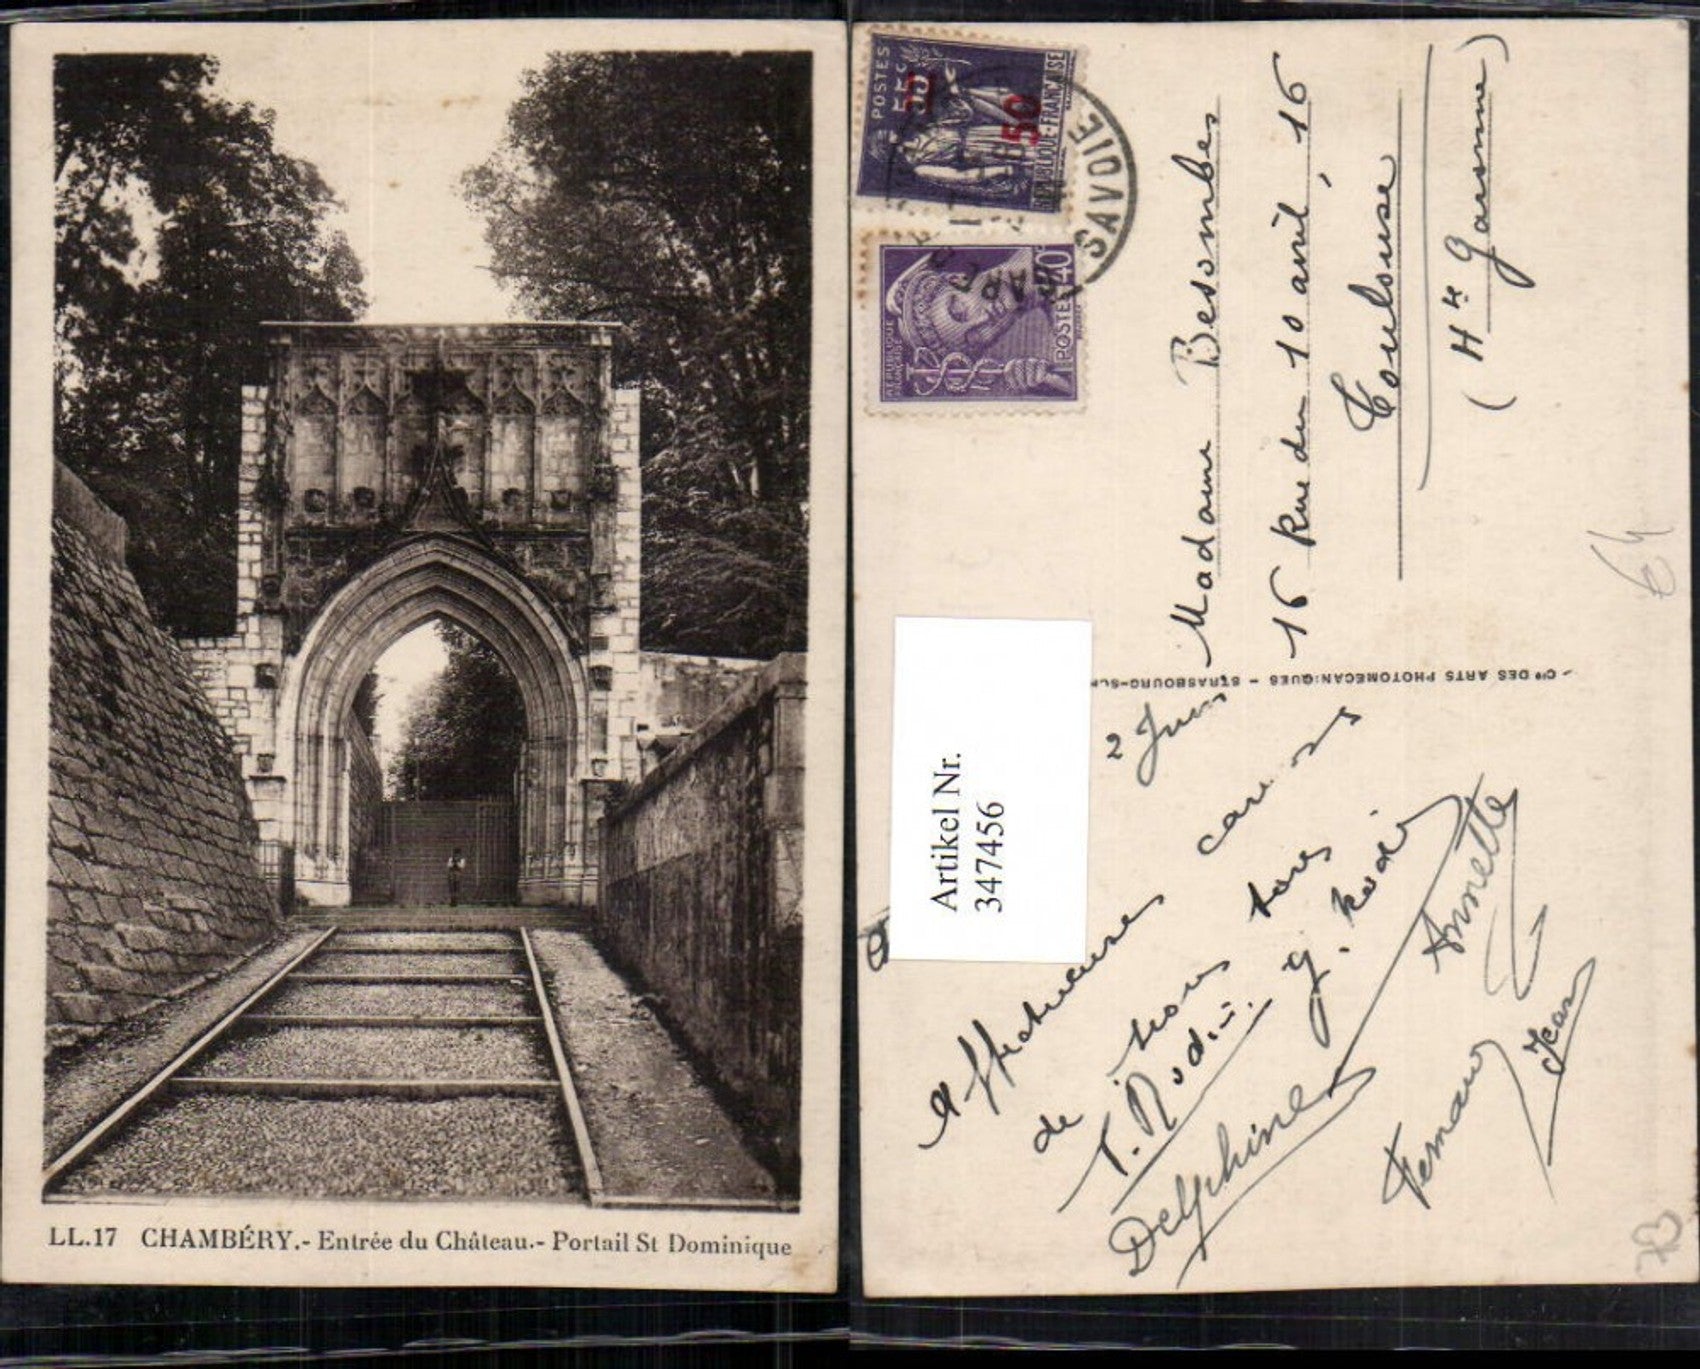 LL.17 CHAMBÉRY.- Entrée du Château.- Portail St Dominique
POSTES
50
RÉPUBLIQUE-FRANÇAISE
SAVOIE
RÉPUBLIQUE
FRANÇAISE
40
POSTES
Madame Besombes
16 Rue du 10 avril, 16
Toulouse
(Hte Garonne)
Cie DES ARTS PHOTOMÉCANIQUES - STRASBOURG-
Artikel Nr.
347456
2 Juin
Affectueuses caresses
de nous tous
T. Rodié. G. Rodié
Delphine Annette
Fernand Jean